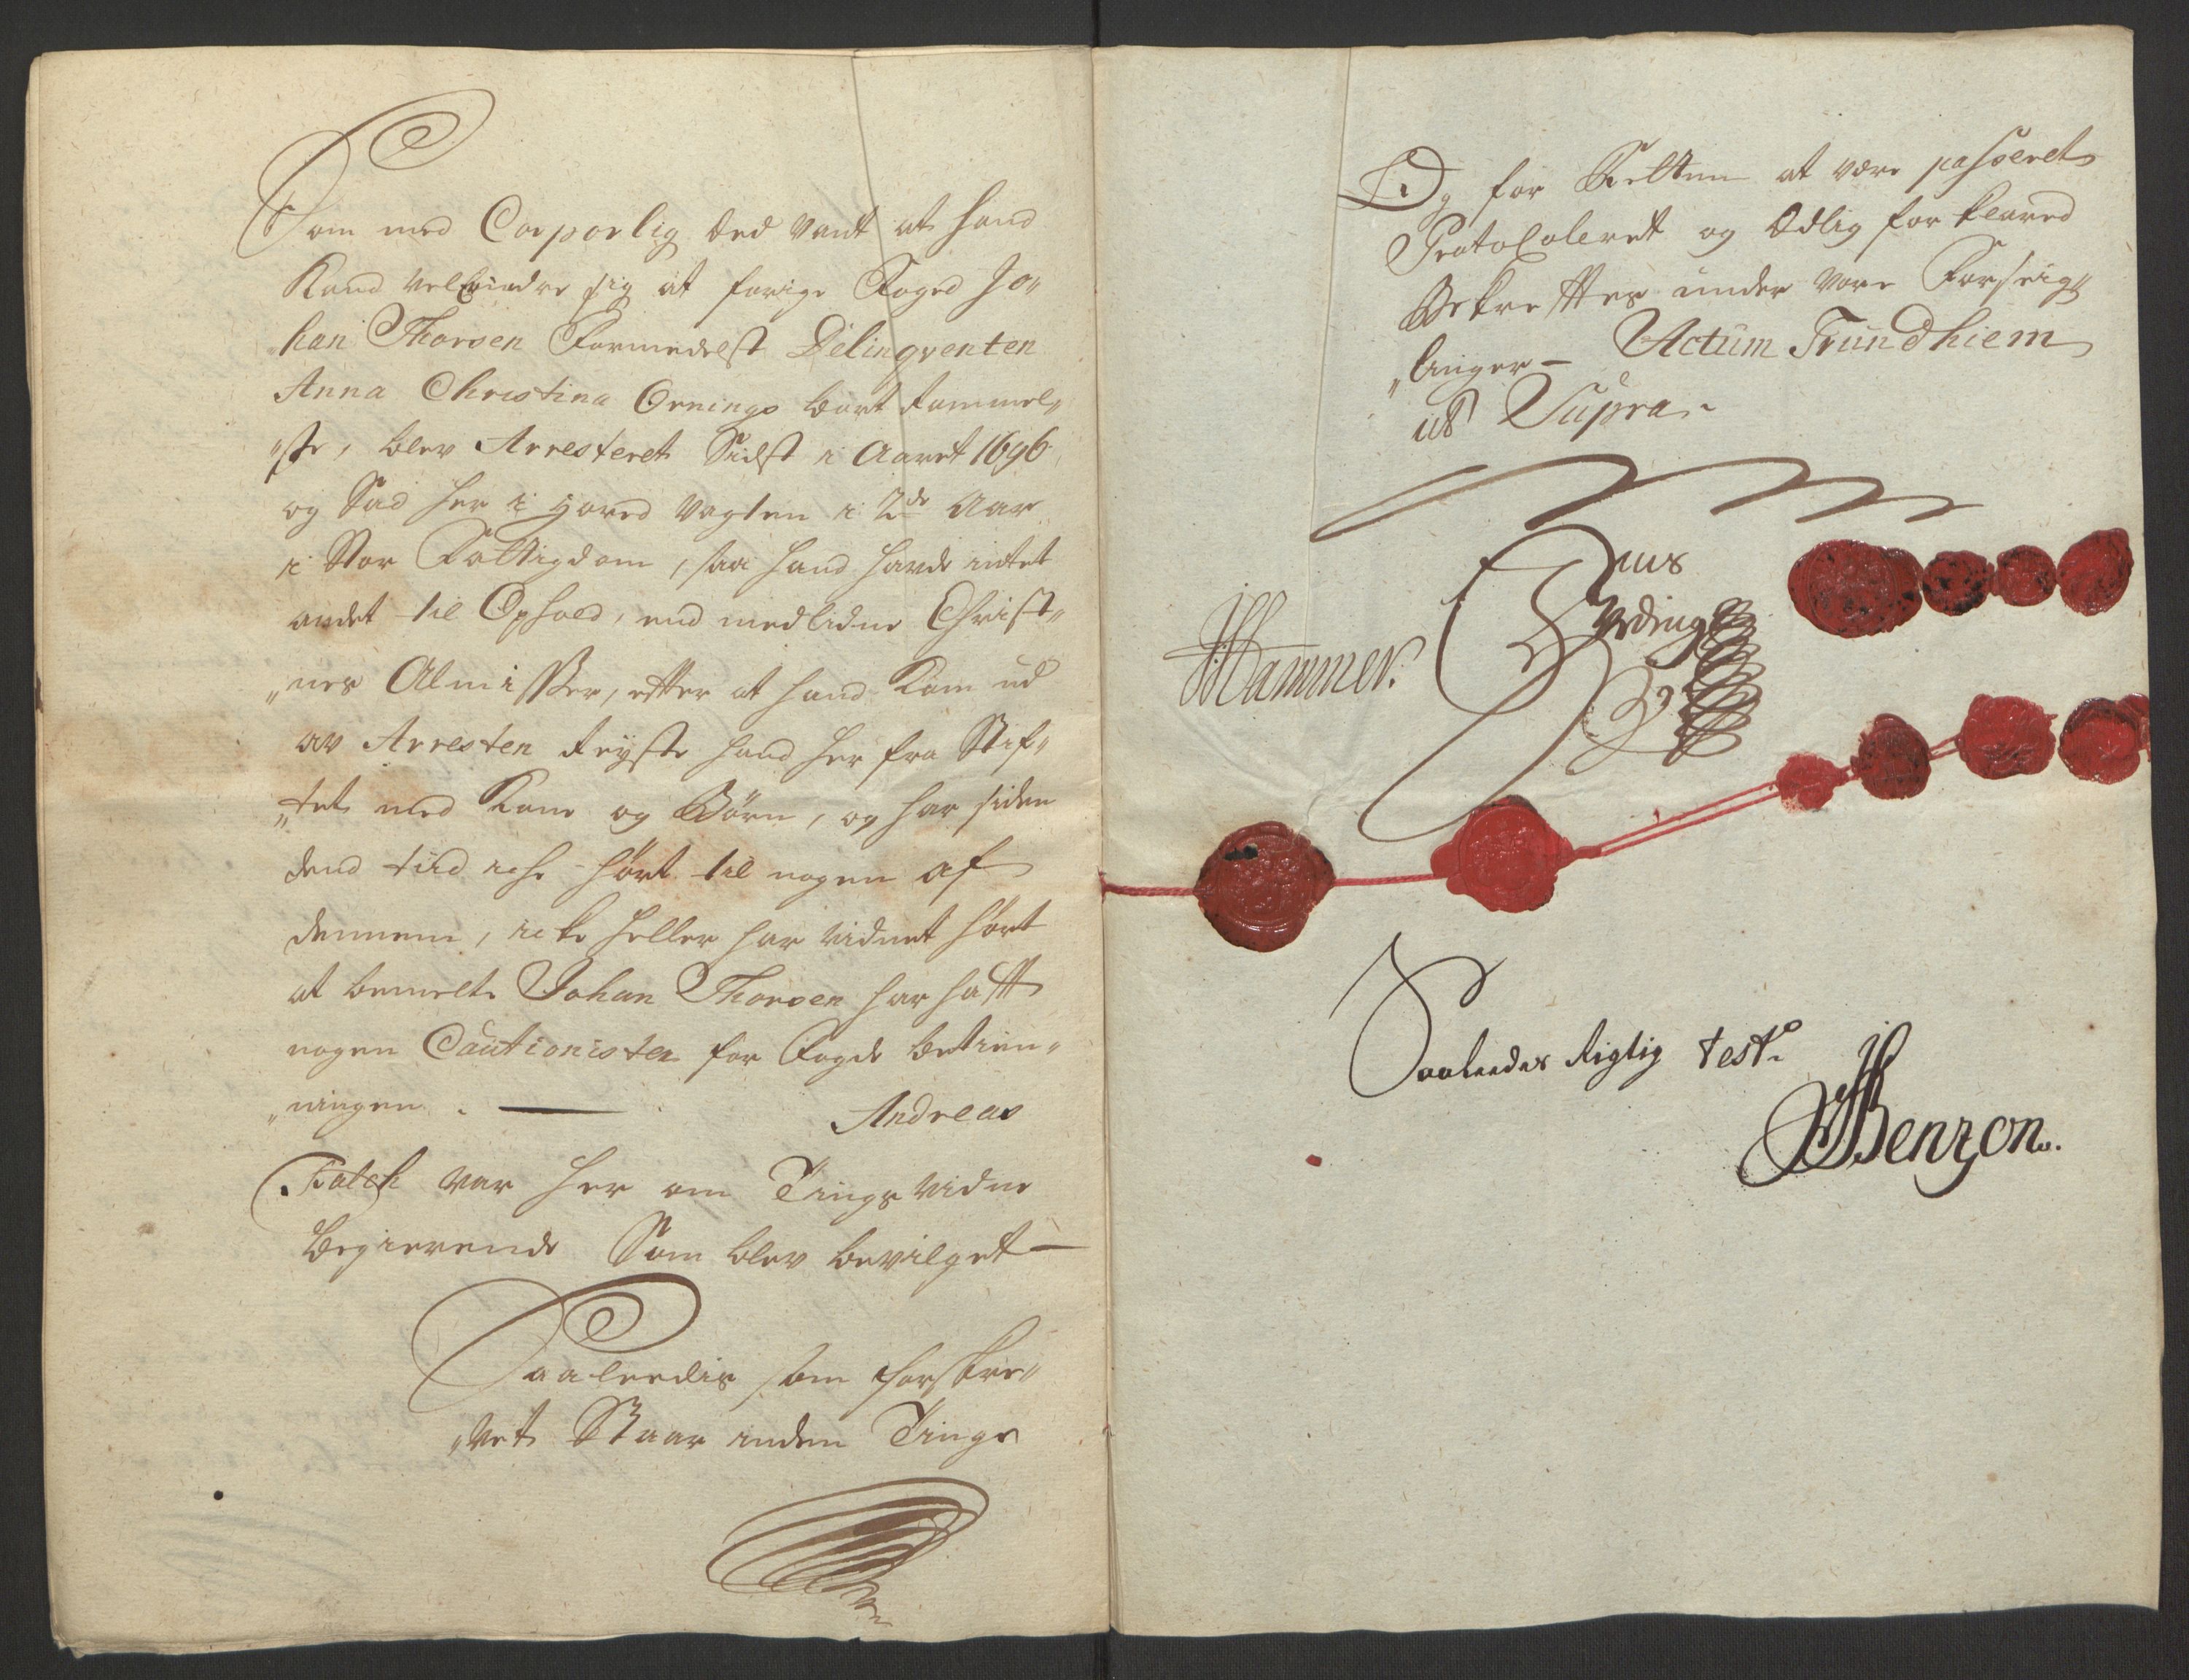 Som med Corporlig Eed vant at hand
Kand vel Erindre sig at forige Foged Jo„
han Thorsen Formedelst Delinqventen
Anna Christina Ornings bort Rømmel„
„se, blev Arresteret Sidst i Aaret 1696
og Sad her i Hoved Vagten i 2de Aar
i Stor Fattigdom, saa hand hafde intet
andet til Ophold, end medlidne Christ„
„nes Almisser, efter at hand kom ud
av Arresten Reyste hand her fra Stif„
„tet med Kone og Børn, og har siden
dend tiid iche hørt til nogen af
dennem, icke heller har vidnet hørt
at bemelte Johan Thorsen har hafft
nogen Cautionister for Fogde betien„
„ningen. — Andreas
Falck var her om Tings vidne
begierende Som blev bevilget —
Saaleedis som forskre„
„vet Staar inden Tings
Og for Retten at være passeret
Protocoleret og Edlig forklared
Bekreffter under vore Forseig„
„linger — Actum Trundhiem
ut Supra.
Hammer.
Saaleedes Rigtig test.
Benzon.